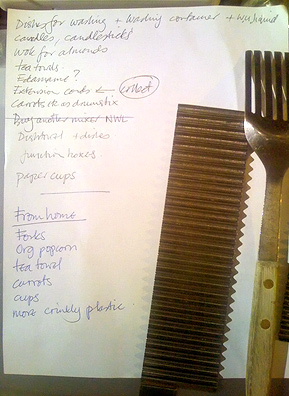 Dishes for washing + washing container + w.u. liquid
candles, candlesticks
Wok for almonds
tea towels.
Edamame?
Extension cords ← collect
carrots ok as drumstix
Buy another mixer NWL
Dishtowel + dishes
junction boxes.
paper cups
From home
Forks
Org popcorn
tea towel
carrots
cups
more crinkly plastic.